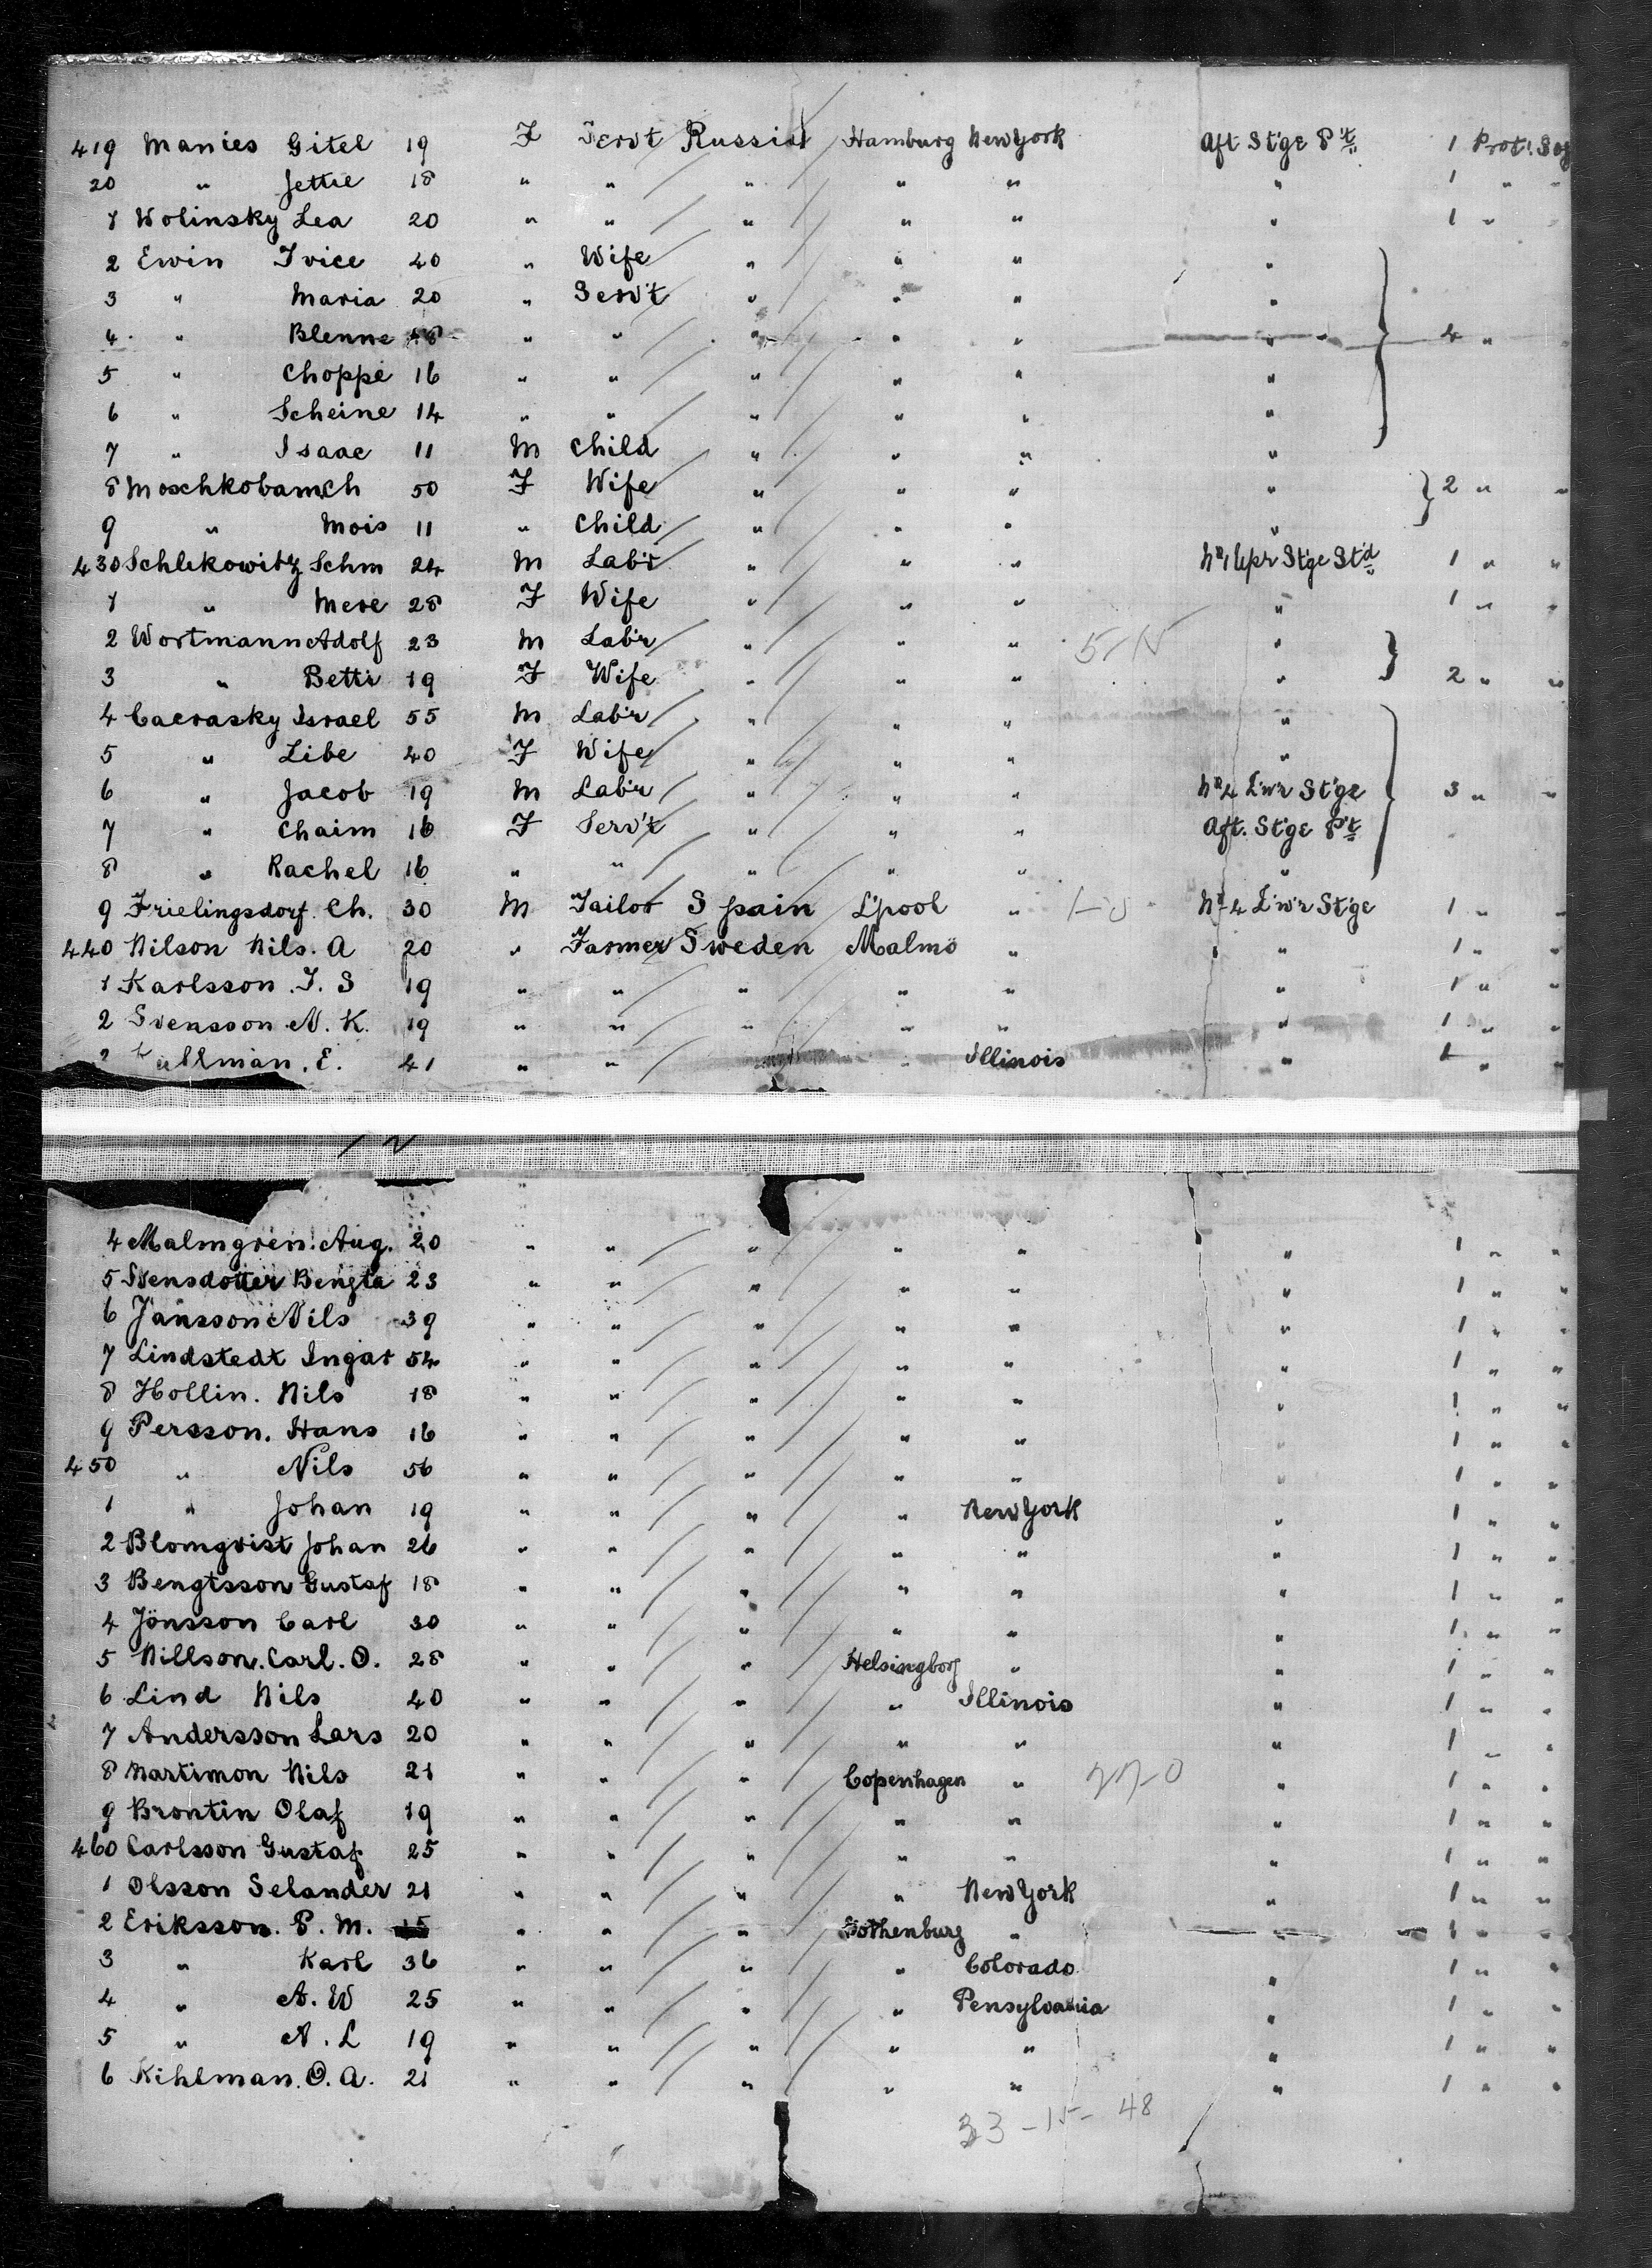 419 Manies Gitel 19 F Serv't Russia Hamburg New York Aft St'ge P't 1 Prot'
20 " Jettie 18 " " " " " " 1 " "
1 Wolinsky Lea 20 " " " " " " 1 "
2 Ewin Ivice 40 " Wife " " " "
3 " Maria 20 " Serv't " " " "
4 " Blenne 18 " " " " " " 4 "
5 " Choppe 16 " " " " " "
6 " Scheine 14 " " " " " "
7 " Isaac 11 M Child " " " "
8 Moschkobam Ch 50 F Wife " " " " 2 " "
9 " Mois 11 " Child " " " "
430 Schlekowitz Schm 24 M Lab'r " " " No 1 Upr St'ge St'd 1 " "
1 " Mere 28 F Wife " " " " 1 " "
2 Wortmann Adolf 23 M Lab'r " " " "
3 " Betti 19 F Wife " " " " 2 " "
4 Cacrasky Israel 55 M Lab'r " " " "
5 " Libe 40 F Wife " " " "
6 " Jacob 19 M Lab'r " " " No 4 L'w'r St'ge 3 " "
7 " Chaim 16 F Serv't " " " Aft. St'ge P't
8 " Rachel 16 " " " " " "
9 Frielingsdorf. Ch. 30 M Tailor Spain L'pool " No 4 L'w'r St'ge 1 " "
440 Nilson Nils. A 20 " Farmer Sweden Malmö " " 1 " "
1 Karlsson. J. S 19 " " " " " " 1 " "
2 Svensson N. K. 19 " " " " " " 1 " "
ullman. E. 41 " " " Illinois " 1 " "
4 Malmgren. Aug. 20 " " " " " " 1 " "
5 Svensdotter Bengta 23 " " " " " " 1 " "
6 Jansson Nils 39 " " " " " " 1 " "
7 Lindstedt Ingar 54 " " " " " " 1 " "
8 Hollin. Nils 18 " " " " " " 1 " "
9 Persson. Hans 16 " " " " " " 1 " "
450 " Nils 56 " " " " " " 1 " "
1 " Johan 19 " " " " New York " 1 " "
2 Blomqvist Johan 26 " " " " " " 1 " "
3 Bengtsson Gustaf 18 " " " " " " 1 " "
4 Jönsson Carl 30 " " " " " " 1 " "
5 Nillson. Carl. O. 28 " " " Helsingborg " " 1 " "
6 Lind Nils 40 " " " " Illinois " 1 " "
7 Andersson Lars 20 " " " " " " 1 " "
8 Martimon Nils 21 " " " Copenhagen " " 1 " "
9 Brontin Olaf 19 " " " " " " 1 " "
460 Carlsson Gustaf 25 " " " " " " 1 " "
1 Olsson Selander 21 " " " " New York " 1 " "
2 Eriksson. P. M. 15 " " " Gothenburg " 1 " "
3 " Karl 36 " " " " Colorado " 1 " "
4 " A. W 25 " " " " Pensylvania " 1 " "
5 " A. L 19 " " " " " " 1 " "
6 Kihlman. O. A. 21 " " " " " " 1 " "
33 - 15 - 48